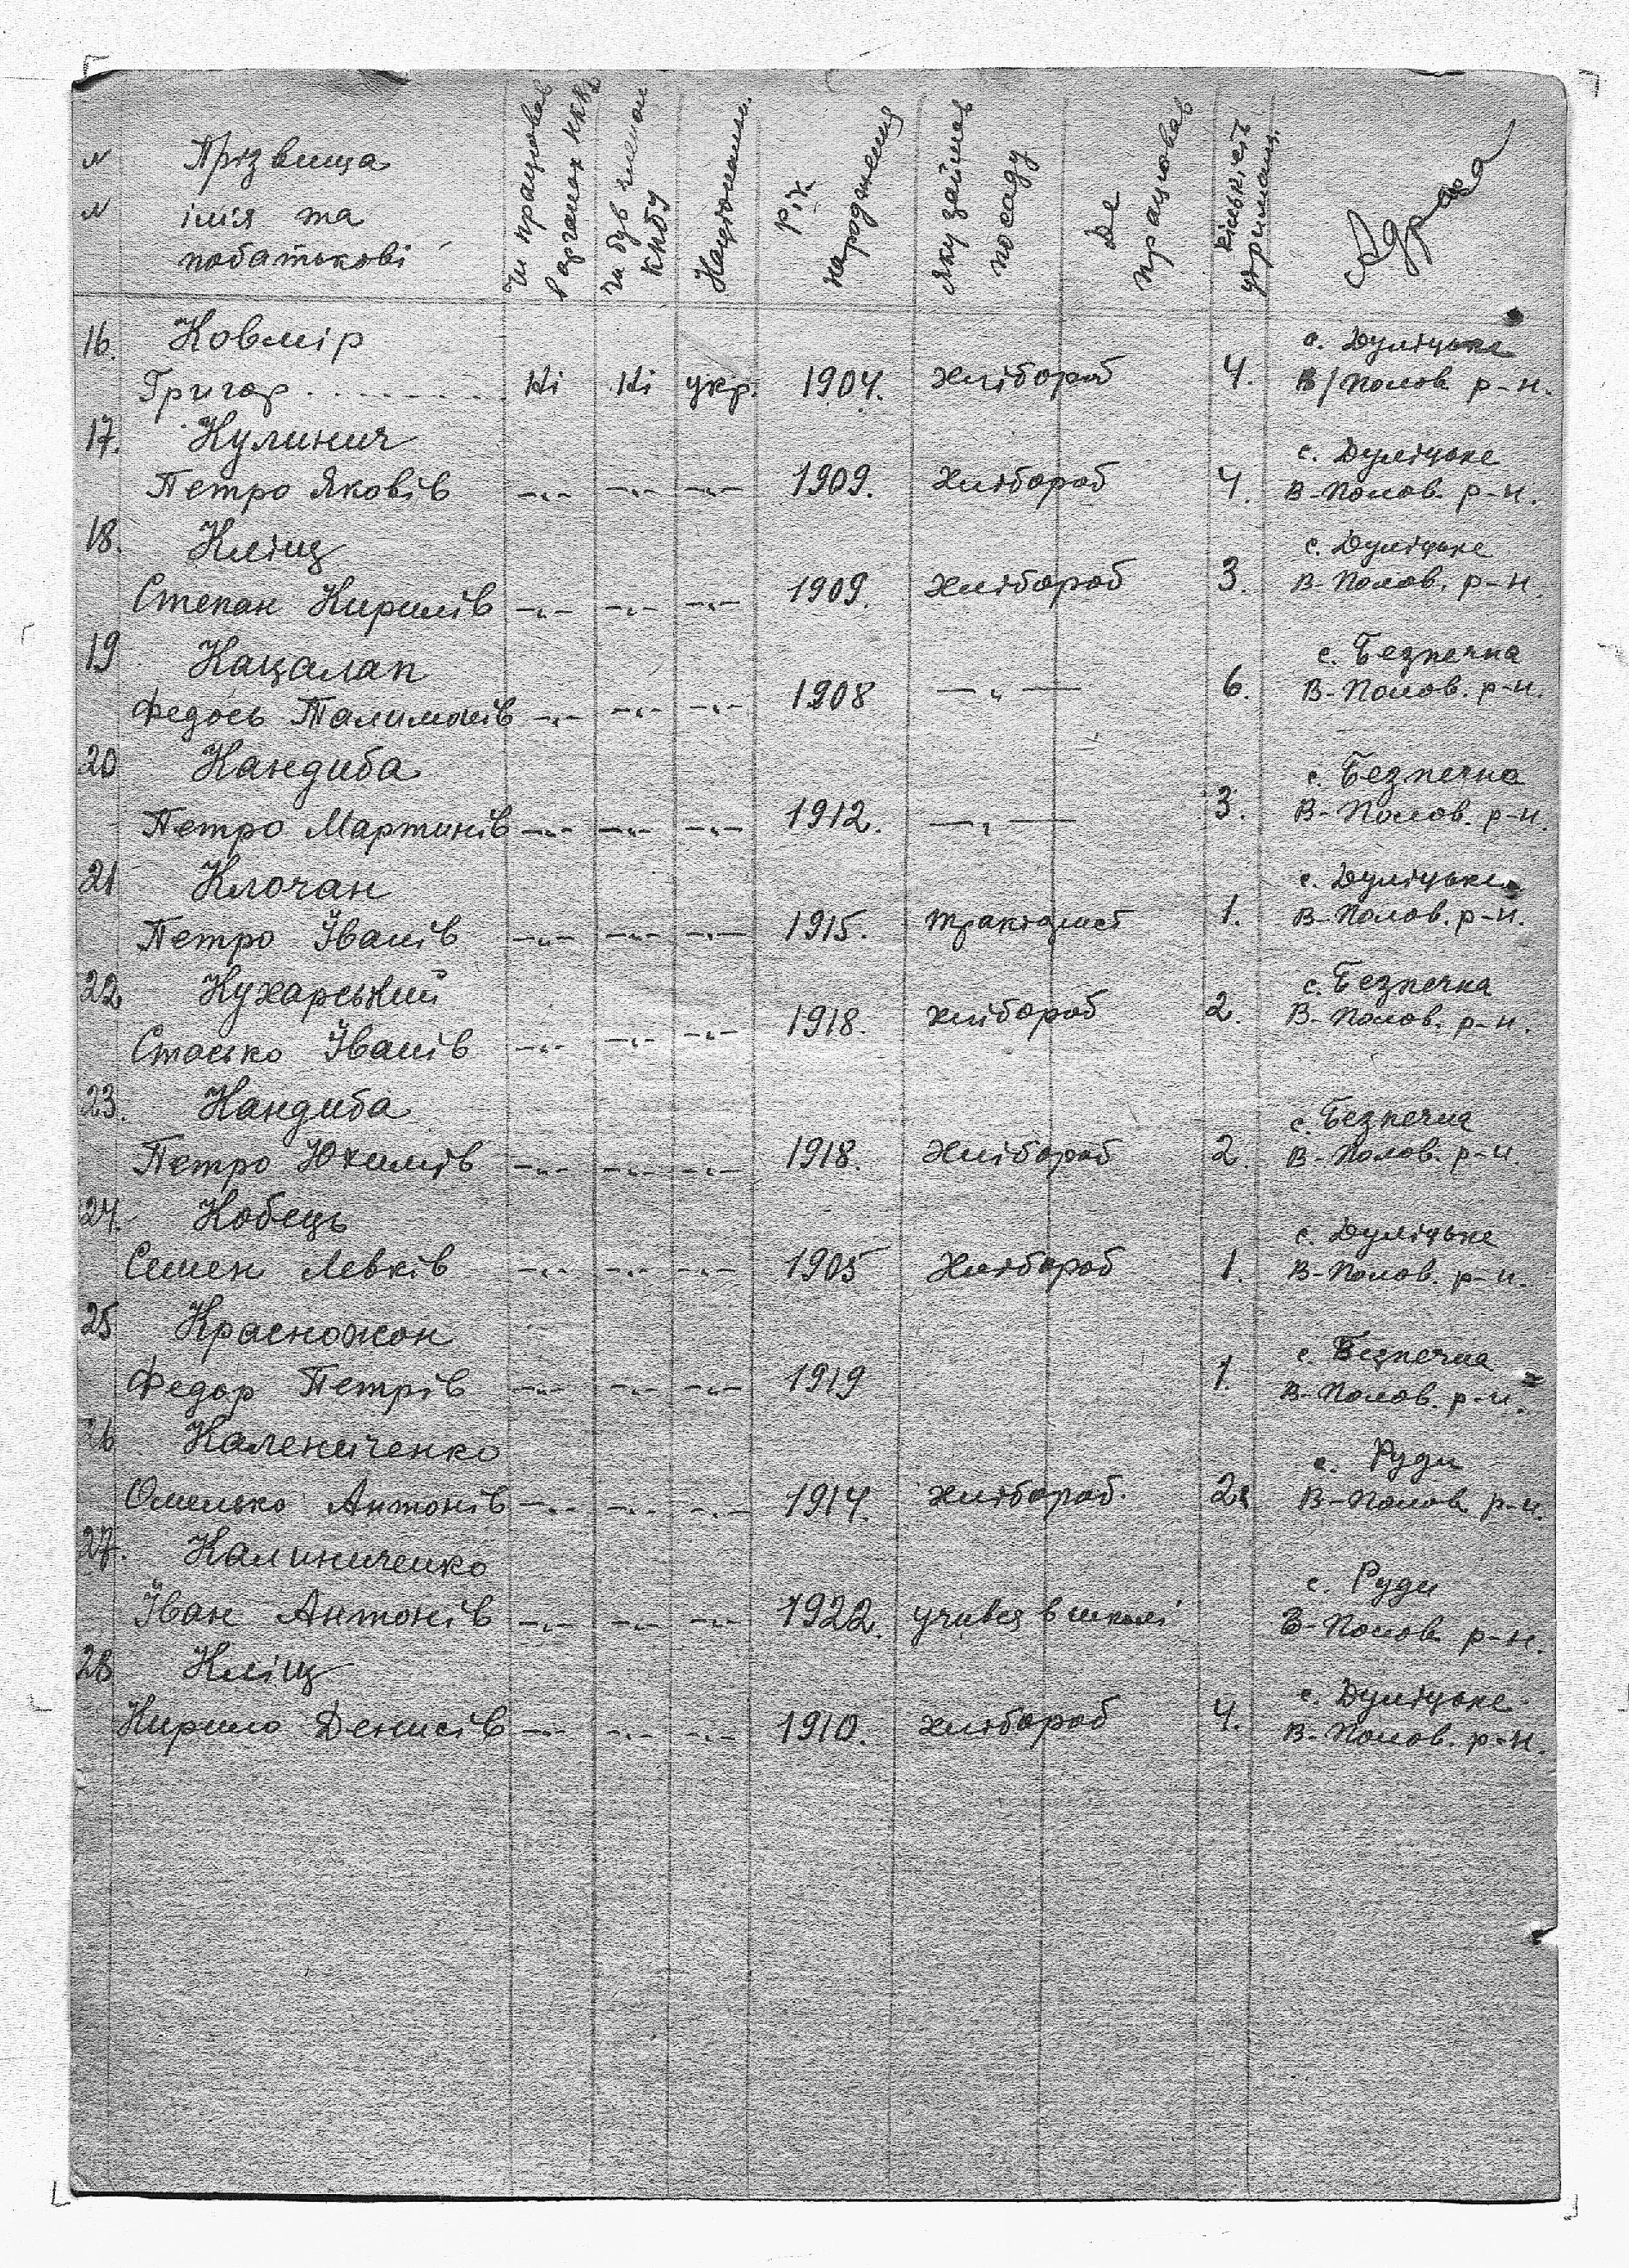 № Прізвища
№ імія та
побатькові
Чи працював
в органах НКВД
Чи був членом
КПбУ
Національн.
Рік
народження
Яку займав
посаду
Де
працював
Кількість
утриманц.
Адреса
16. Ковмір с. Дуліцьке
Григор . . . . . . . . Ні Ні укр. 1904. хлібороб 4. В/Полов. р-н.
17. Кулинич с. Дуліцьке
Петро Яковів —„— —„— —„— 1909. хлібороб 4. В-Полов. р-н.
18. Кліщ с. Дуліцьке
Степан Кирилів —„— —„— —„— 1909. хлібороб 3. В-Полов. р-н.
19 Кацалап с. Безпечна
Федось Талимонів —„— —„— —„— 1908 —„— 6. В-Полов. р-н.
20 Кандиба с. Безпечна
Петро Мартинів —„— —„— —„— 1912. —„— 3. В-Полов. р-н.
21 Клочан с. Дуліцьке
Петро Іванів —„— —„— —„— 1915. тракторист 1. В-Полов. р-н.
22 Кухарський с. Безпечна
Стасько Іванів —„— —„— —„— 1918. хлібороб 2. В-Полов. р-н.
23. Кандиба с. Безпечна
Петро Юхимів —„— —„— —„— 1918. хлібороб 2. В-Полов. р-н.
24. Кобець с. Дуліцьке
Семен Левків —„— —„— —„— 1905 хлібороб 1. В-Полов. р-н.
25 Красножон с. Безпечна
Федор Петрів —„— —„— —„— 1919 1. В-Полов. р-н.
26 Калениченко с. Руди
Омелько Антонів —„— —„— —„— 1914. хлібороб. 2. В-Полов. р-н.
27. Калиниченко с. Руди
Іван Антонів —„— —„— —„— 1922. учився в школі В-Полов. р-н.
28 Кліщ с. Дуліцьке
Кирило Денисів —„— —„— —„— 1910. хлібороб 4. В-Полов. р-н.